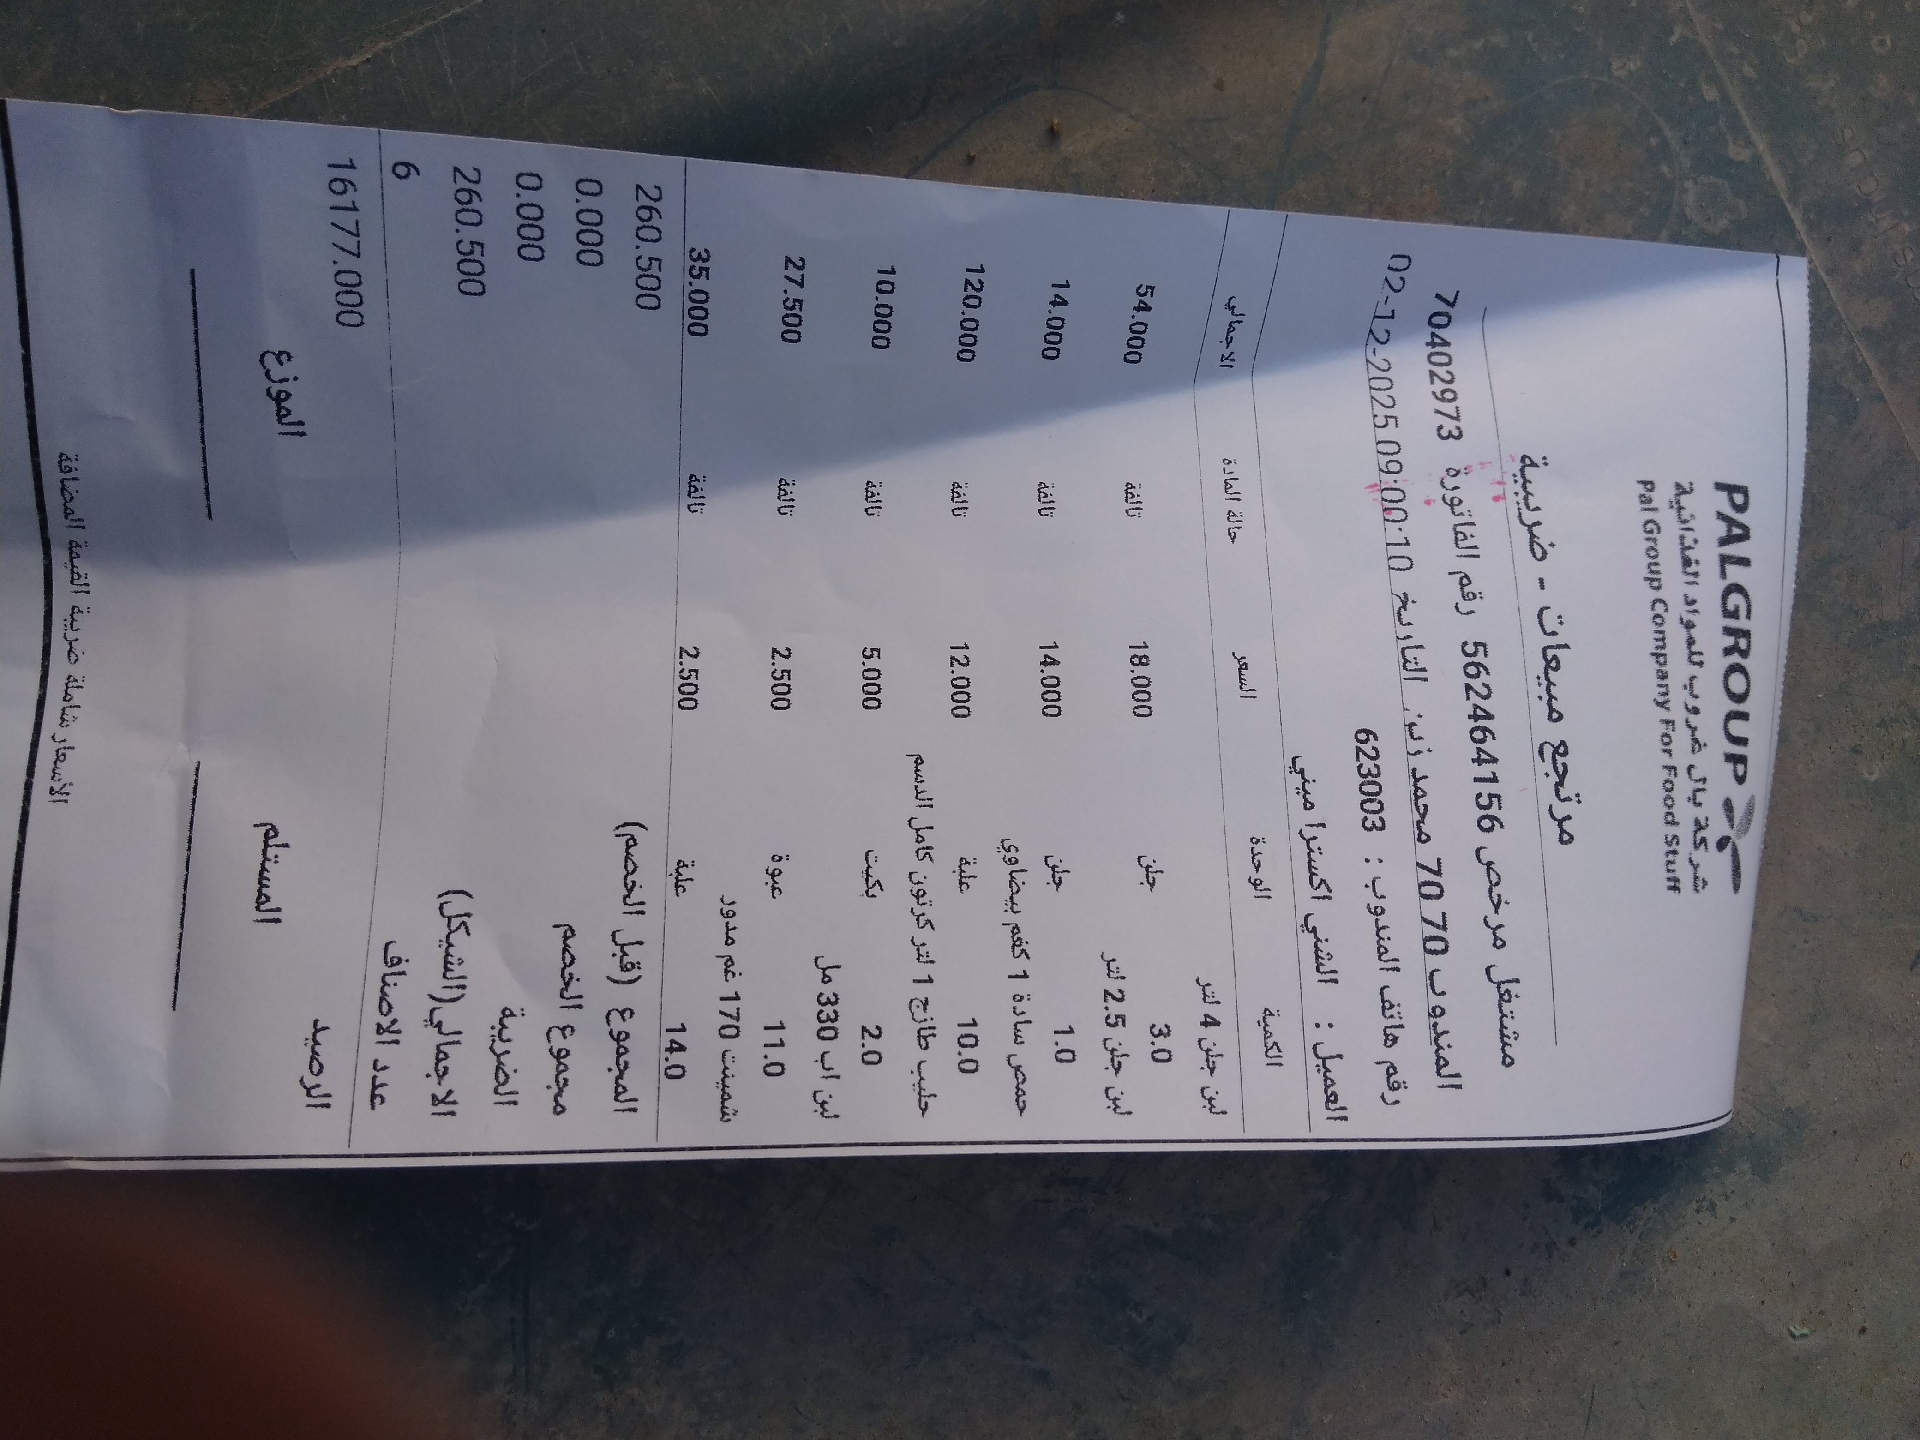 PALGROUP
شركة بال غروب للمواد الغذائية
Pal Group Company For Food Stuff
مرتجع مبيعات - ضريبية
مشتغل مرخص 562464156 رقم الفاتورة 70402973
المندوب 70 70 محمد التاريخ 02-12-2025 09:00:10
رقم هاتف المندوب : 623003
العميل : الشني اكسترا ميني
الكمية الوحدة السعر حالة المادة الاجمالي
لبن جلن 4 لتر
3.0 جلن 18.000 تالفة 54.000
لبن جلن 2.5 لتر
1.0 جلن 14.000 تالفة 14.000
حمص سادة 1 كغم بيضاوي
10.0 علبة 12.000 تالفة 120.000
حليب طازج 1 لتر كرتون كامل الدسم
2.0 بكيت 5.000 تالفة 10.000
لبن اب 330 مل
11.0 عبوة 2.500 تالفة 27.500
شمينت 170 غم مدور
14.0 علبة 2.500 تالفة 35.000
المجموع (قبل الخصم) 260.500
مجموع الخصم 0.000
الضريبة 0.000
الاجمالي(الشيكل) 260.500
عدد الاصناف 6
الرصيد 16177.000
المستلم الموزع
الأسعار شاملة ضريبة القيمة المضافة